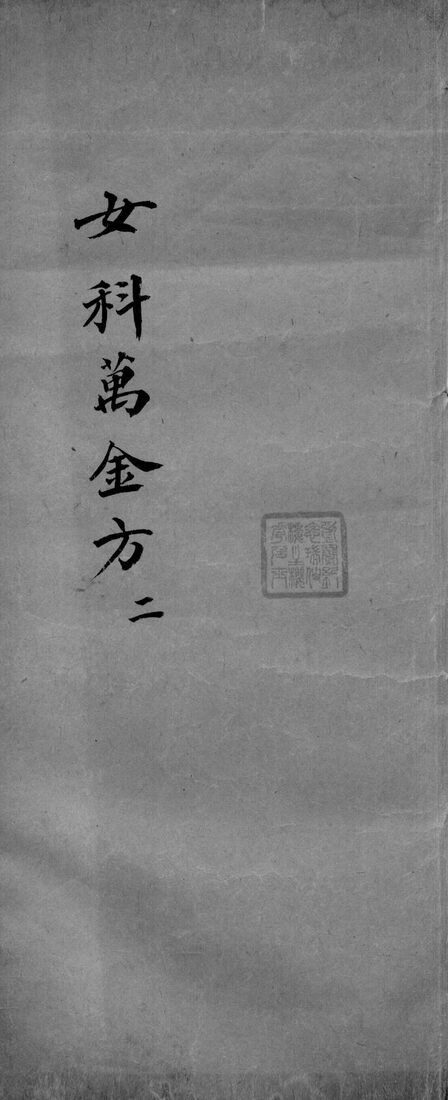 女科萬金方 二